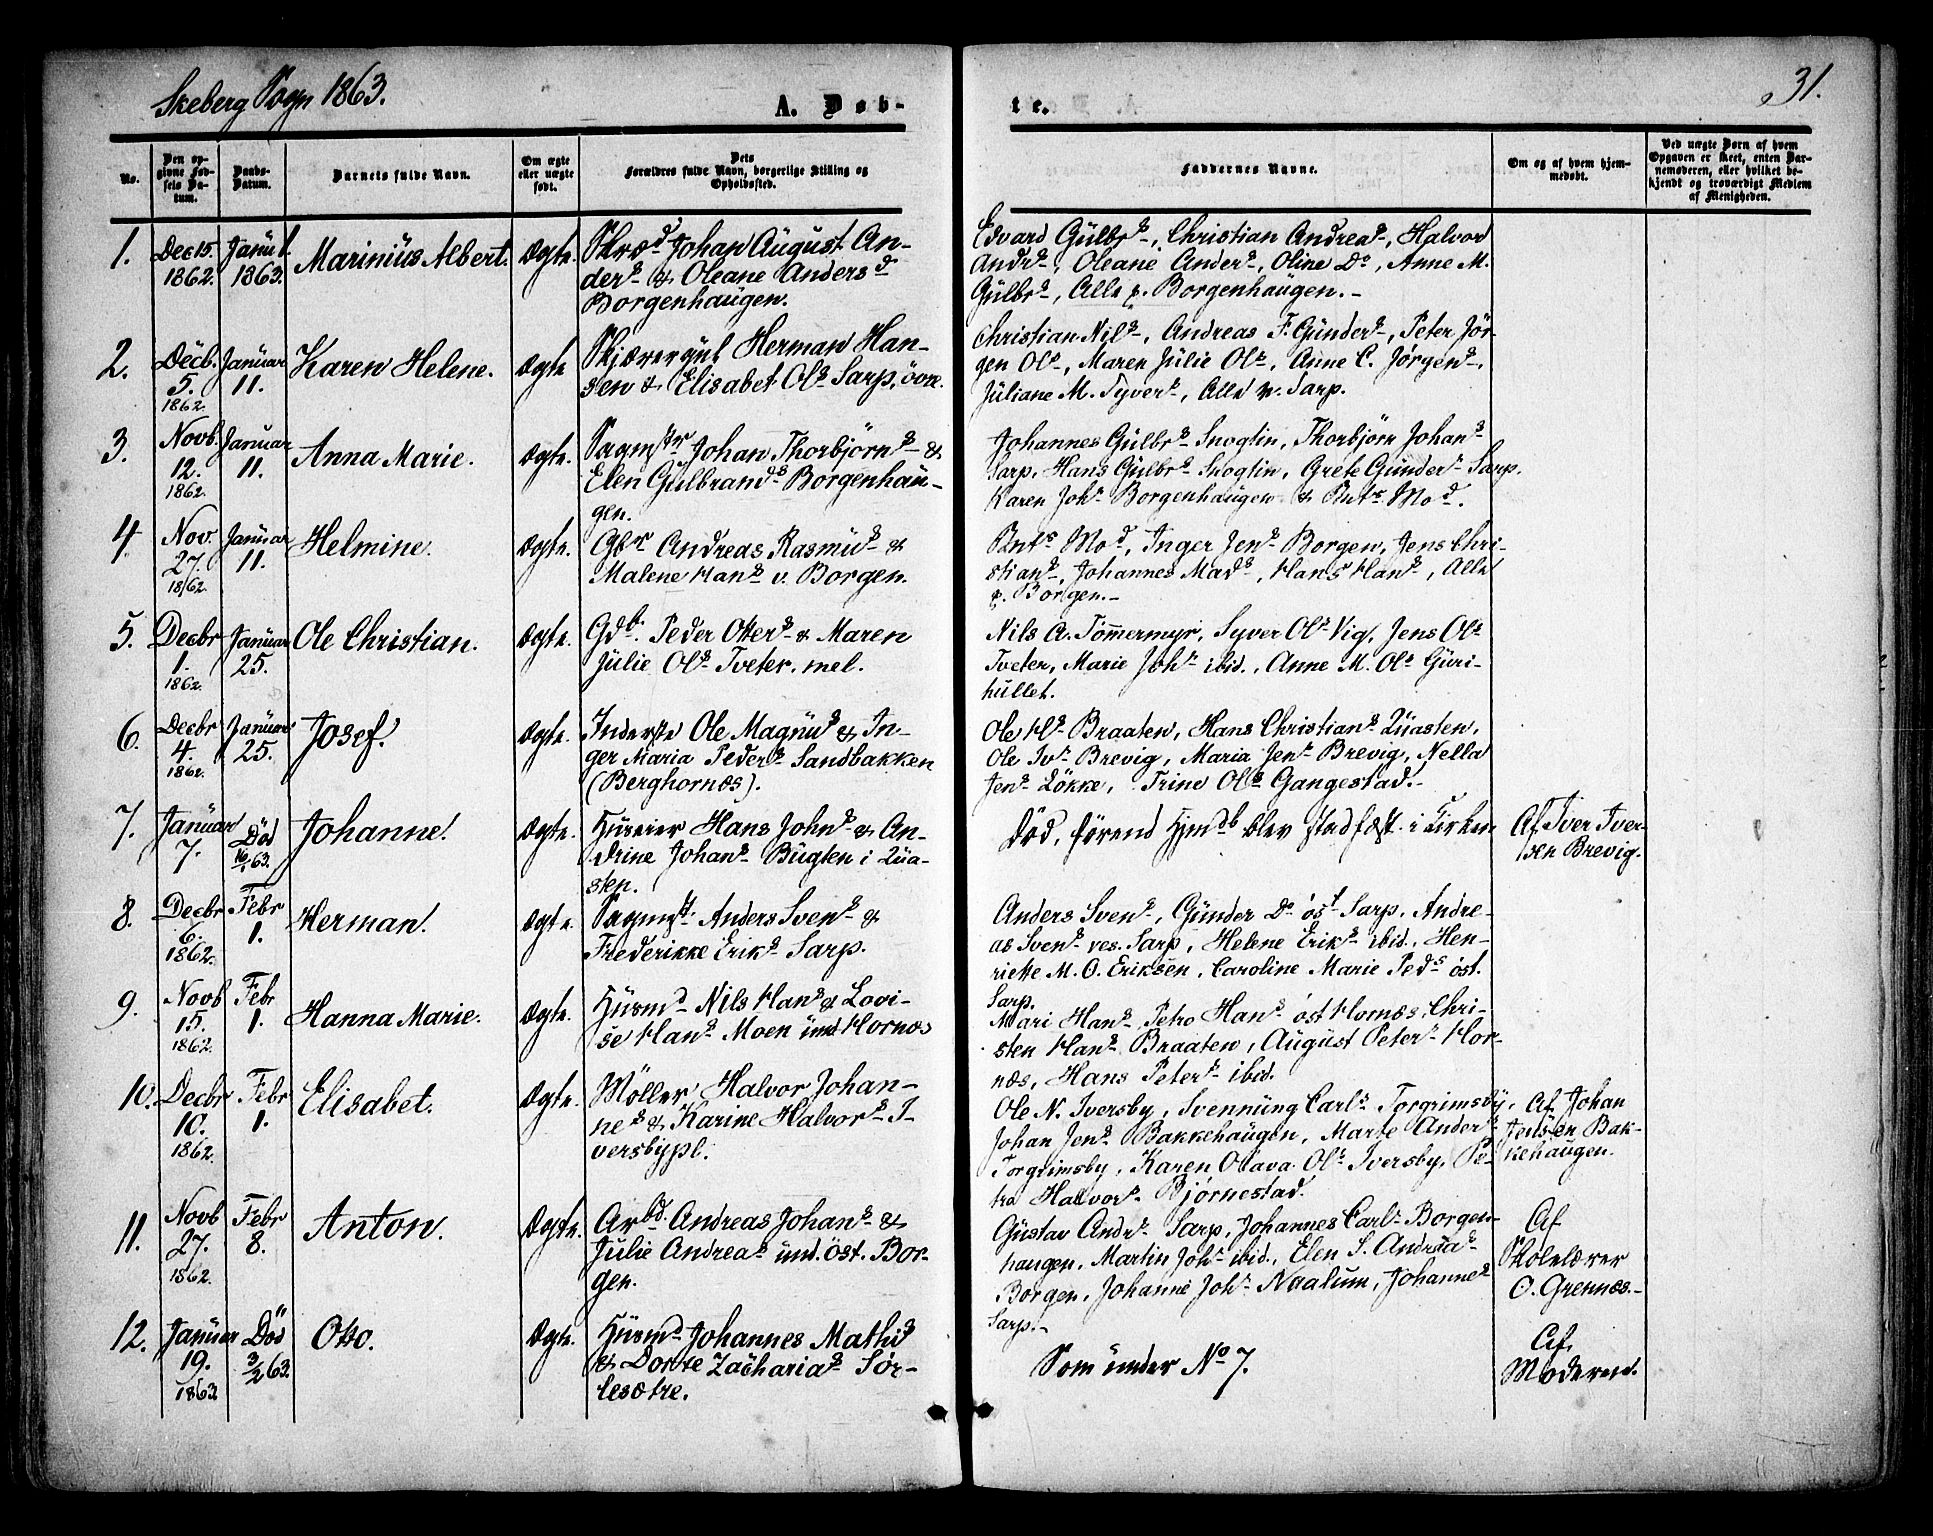 Skeberg Sogn 1863.
A. Døb-
te.
31.
No.
Den op-
givne Fød-
sels Da-
tum.
Daabs-
Datum.
Barnets fulde Navn.
Om ægte
eller uægte
født.
Dets
Forældres fulde Navn, borgerlige Stilling og
Opholdssted.
Faddernes Navne.
Om og af hvem hjem-
medøbt.
Ved uægte Børn af hvem
Opgaven er skeet, enten Bar-
nemoderen, eller hvilket be-
kjendt og troværdigt Medlem
af Menigheden.
1.
Dec 15.
1862.
Janu 1.
1863.
Marinius Albert.
Ægte.
Skræd Johan August An-
ders & Oleane Anders d
Borgenhaugen.
Edvard Gülbrs, Christian Andreas, Halvor
Andrs, Oleane Anders, Oline Do, Anne M.
Gülbrs, Alle p. Borgenhaugen.-
2.
Decb.
5.
1862.
Januar
11.
Karen Helene.
Ægte
Skjærergut Herman Han-
sen & Elisabet Ols Sarp, övre.
Christian Nils, Andreas F. Gunders, Peter Jör-
gen Ols, Maren Julie Ols, Anne C. Jørgens,
Juliane M. Syvers, Alle v. Sarp.
3.
Novb.
12.
1862.
Januar
11.
Anna Marie.
Ægte.
Sagmstr Johan Thorbjörns &
Elen Gulbrands Borgenhau-
gen.
Johannes Gülbrs Snoglin, Thorbjörn Johans
Sarp, Hans Gülbrs Snoglin, Grete Gunders Sarp.
Karen Johs Borgenhaugen & Bnts Mod.
4
Nov.
27.
1862.
Januar
11.
Helmine.
Ægte.
Gbr Andreas Rasmus &
Malene Hans v. Borgen.
Bnts Mod, Inger Jens Borgen, Jens Chri-
stians, Johannes Mads, Hans Hans, Alle
p. Borgen.-
5.
Decbr
1.
1862.
Januar
25.
Ole Christian.
Ægte.
Gdb. Peder Otters & Maren
Julie Ols Tveter, mel.
Nils A. Tömmermyr, Syver Ols Vig, Jens Ols
Tveter, Marie Johs ibid., Anne M. Ols Guri-
hullet.
6.
Decbr
4.
1862.
Januar
25.
Josef.
Ægte.
Inderste Ole Magnus & In-
ger Maria Peders Sandbakken
(Berghornæs).
Ole Hs Braaten, Hans Christians Quasten,
Ole Ivs Brevig, Maria Jens Brevig, Nella
Jens Lökke, Trine Ols Gangestad.-
7.
Januar
7.
Död
16/1 63.
Johanne.
Ægte.
Huseier Hans Johns & An-
drine Johans Bugten i Qua-
sten.
Död, förend Hjmdb blev stadfæst. i Kirken
Af Iver Iver-
sen Brevig.
8.
Decbr
6.
1862.
Febr
1.
Herman.
Ægte.
Sagmstr. Anders Svens &
Frederikke Eriks Sarp.
Anders Svens, Gunder Do öst Sarp, Andre-
as Svens ves. Sarp, Helene Eriks ibid., Hen-
riette M. O. Eriksen, Caroline Marie Peds öst.
Sarp.
9.
Novb
15.
1862.
Febr
1.
Hanna Marie.
Ægte.
Husmd Nils Hans & Lovi-
se Hans Moen und Hornæs
Mari Hans, Petro Hans öst Hornæs, Chri-
sten Hans Braaten, August Peters Hor-
næs, Hans Peters ibid.
10.
Decbr
10.
1862.
Febr
1.
Elisabet.
Ægte.
Möller Halvor Johan-
nes & Karine Halvors I-
versbypl.
Ole N. Iversby, Svennung Carls Torgrimsby,
Johan Jens Bakkehaugen, Marte Anders
Torgrimsby, Karen Olava Ols Iversby, Pe-
tra Halvors Bjørnestad.
Af Johan
Jensen Bak-
kehaugen.
11.
Novb
27.
1862.
Febr
8.
Anton.
Ægte.
Arbd. Andreas Johans &
Julie Andreas und. öst. Bor-
gen.
Gustav Andrs Sarp, Johannes Carls Borgen-
haugen, Martin Johs ibid., Elen S. Andreas
Borgen, Johanne Johs Naalum, Johannes
Sarp.-
Af
Skolelærer
O. Grennæs.-
12.
Januar
19.
1863
Död
3/2 63.
Otto.
Ægte.
Husmd Johannes Mathis
& Dorte Zacharias Sør-
lesætre.
Som under No 7.
Af
Moderen.